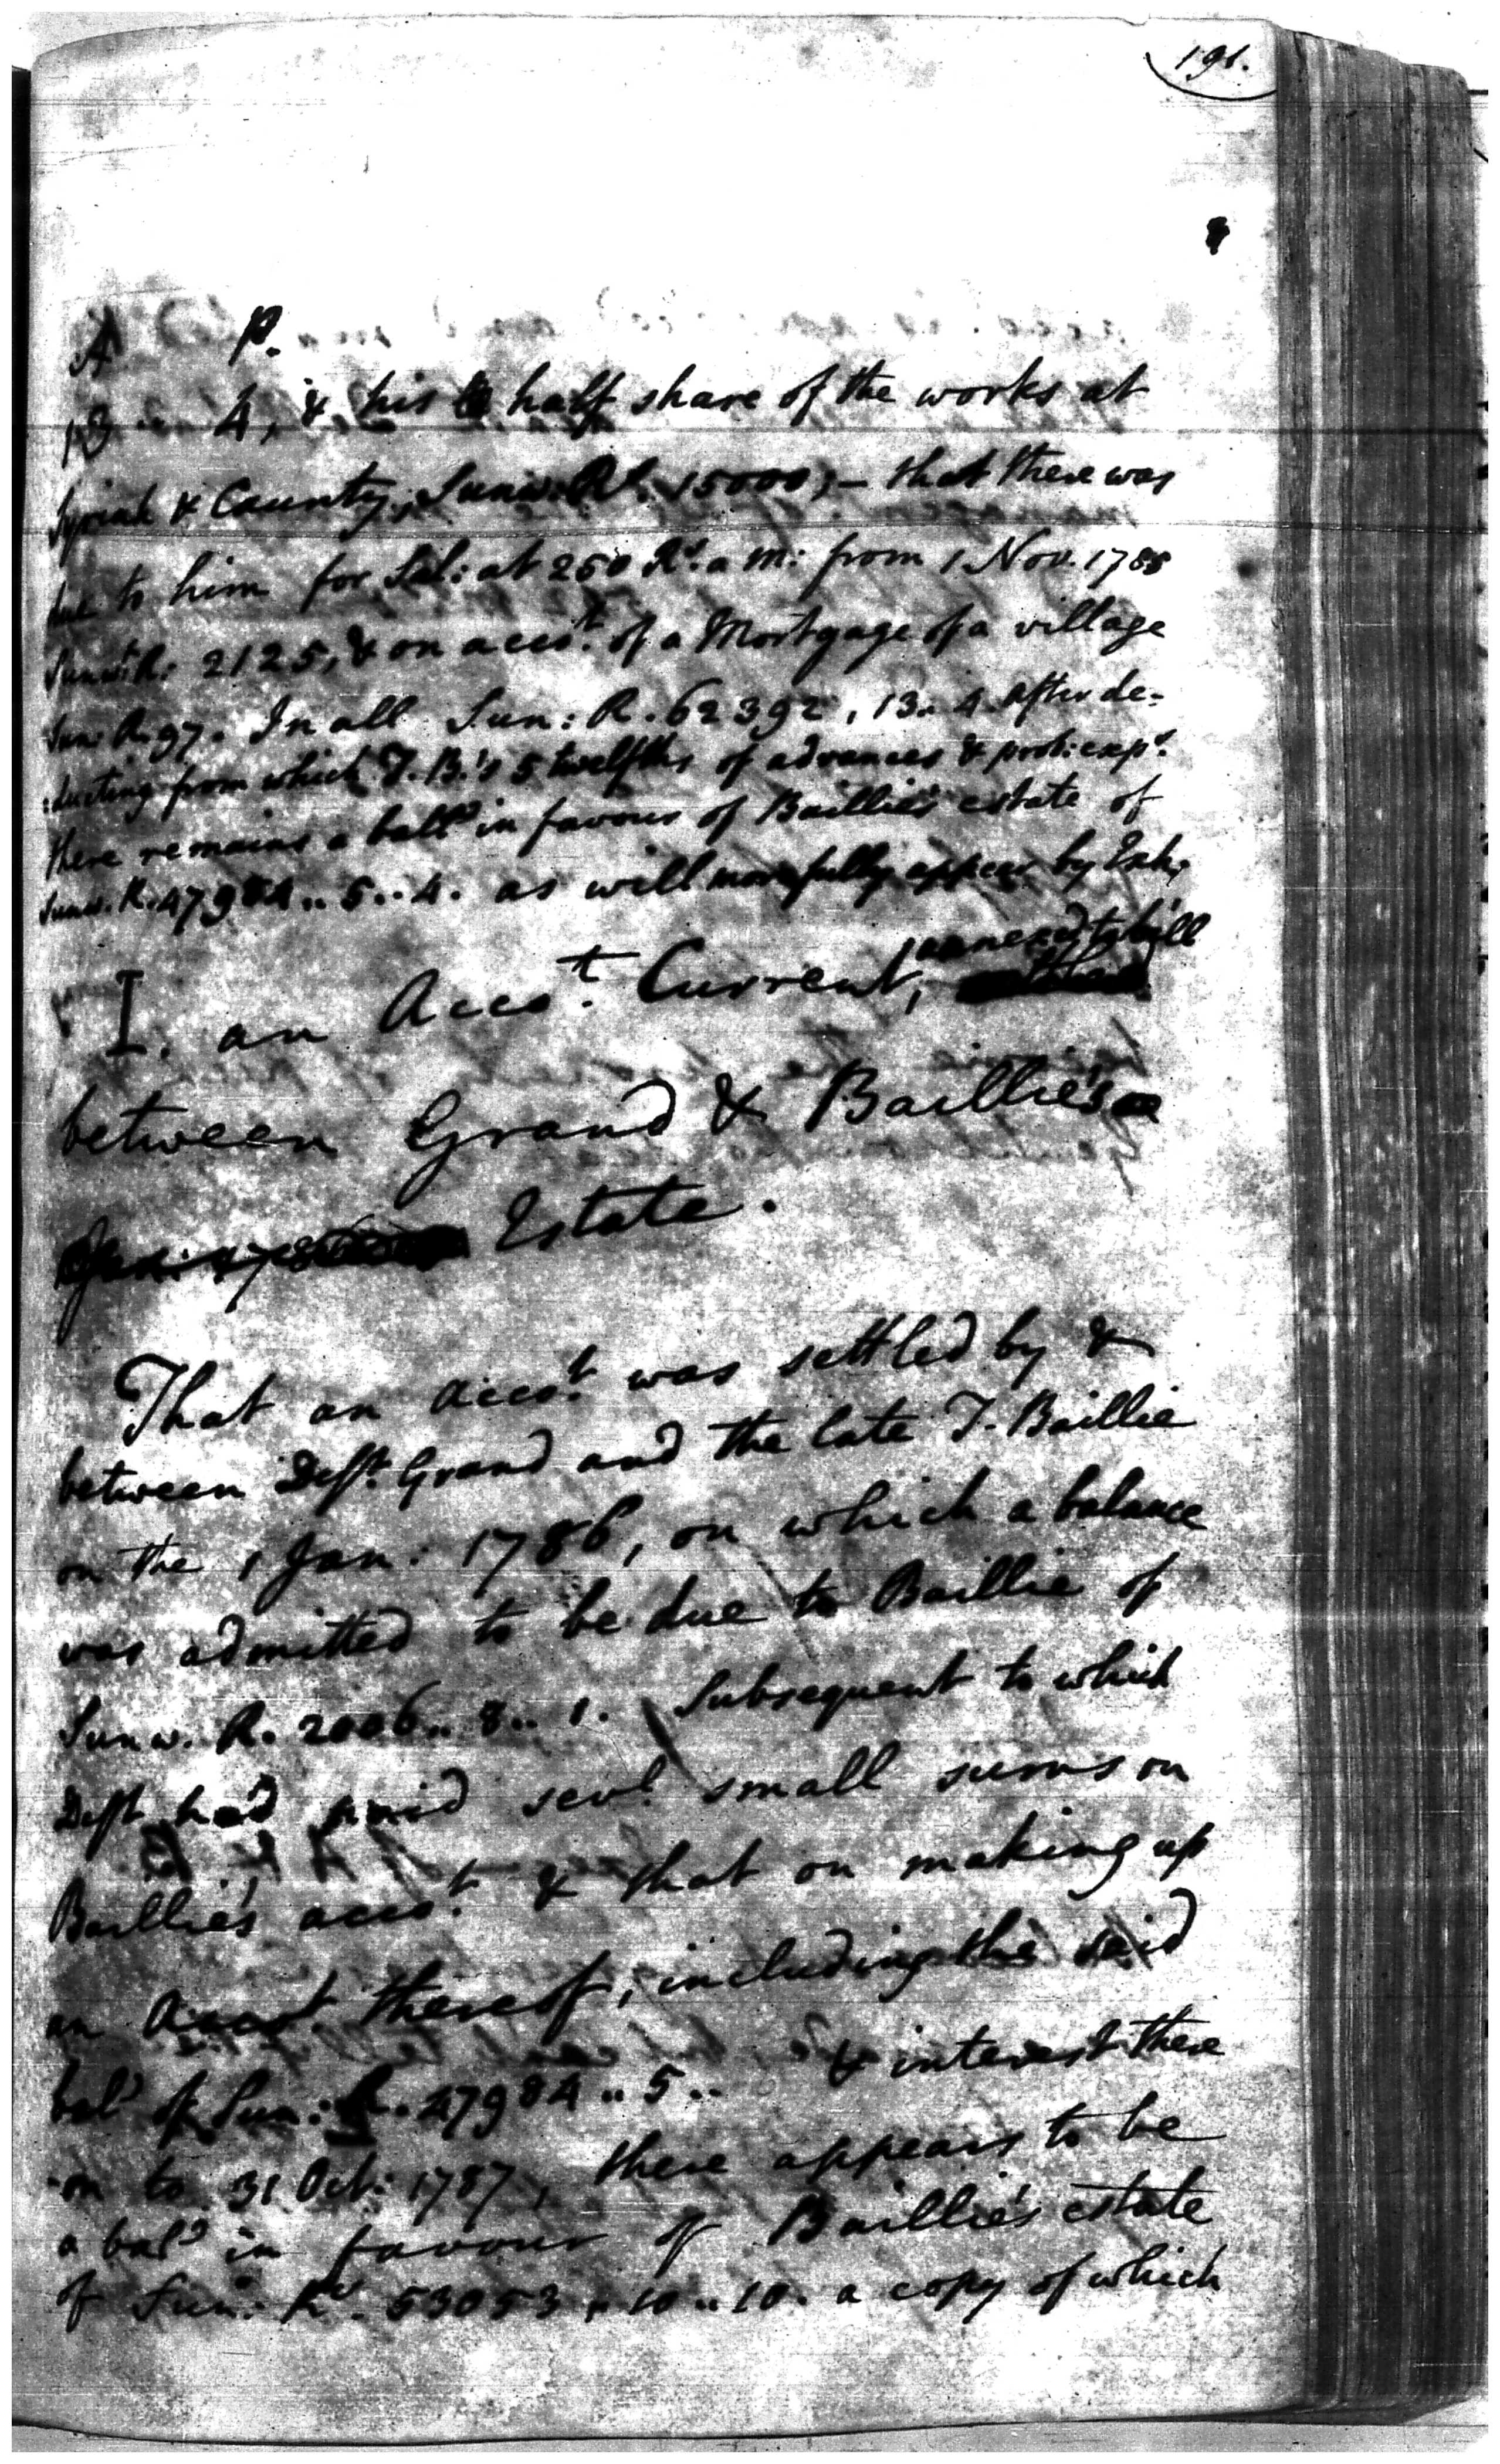 191.
A P.
13 .. 4, & his half share of the works at
Syriah & County, Sunw. Rs. 15000; – that there was
due to him for Sal: at 250 Rs. a m: from 1 Nov. 1785
Sunwt R: 2125, & on accot. of a Mortgage of a village
Sun: R. 97. In all Sun: R. 62392, 13.. 4. After de-
:ducting from which J. B.'s 5 twelfths of advances & prob: exps.
there remains a balce in favour of Baillie's estate of
Sunw. R. 47984 .. 5 .. 4. as will more fully appear by Exh.
annexed to bill
I. an Accot. Current,
between Grand & Baillie's
Estate.
That an accot. was settled by &
between Deft. Grand and the late J. Baillie
on the 1 Jan: 1786, on which a balance
was admitted to be due to Baillie of
Sunw. R. 2006 .. 8 .. 1. Subsequent to which
Deft had paid sevl. small sums on
Baillie's accot. & that on making up
an Accot. thereof, including the said
bale of Sun: R. 47984 .. 5 .. & interest there
-on to 31 Oct: 1787, there appears to be
a bale in favour of Baillie's estate
of Sun: Rs. 53053 .. 10 .. 10. a copy of which